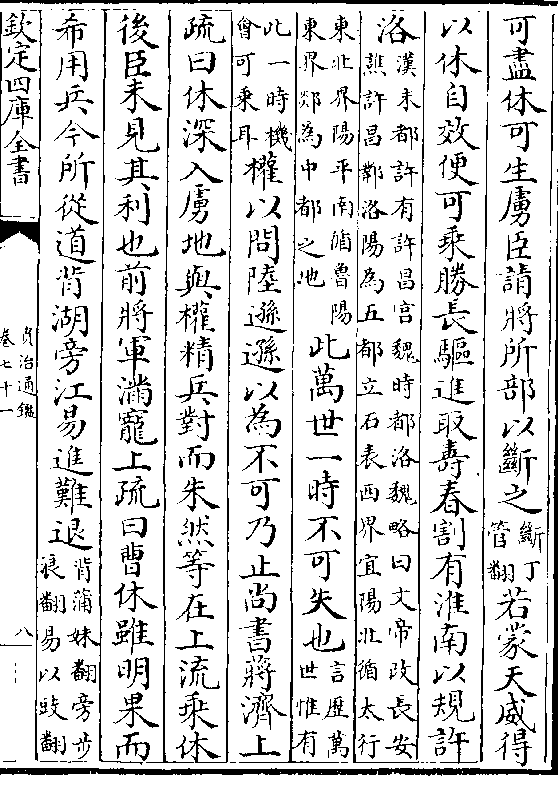 可盡休可生虜臣請將所部以斷之斷丁管翻若蒙天威得
以休自效便可乘勝長驅進取壽春割有淮南以規許
洛漢末都許有許昌宫魏時都洛魏略曰文帝改長安譙許昌鄴洛陽為五都立石表西界宜陽北循太行
東北界陽平南循魯陽東界郯為中都之地此萬世一時不可失也言歷萬世惟有
此一時機會可乘耳權以問陸遜遜以為不可乃止尚書蔣濟上
疏曰休深入虜地與權精兵對而朱然等在上流乘休
後臣未見其利也前將軍滿寵上疏曰曹休雖明果而
希用兵今所從道背湖旁江易進難退背蒲妹翻旁步浪翻易以豉翻
欽定四庫全書
資治通鑑
卷七十一
八